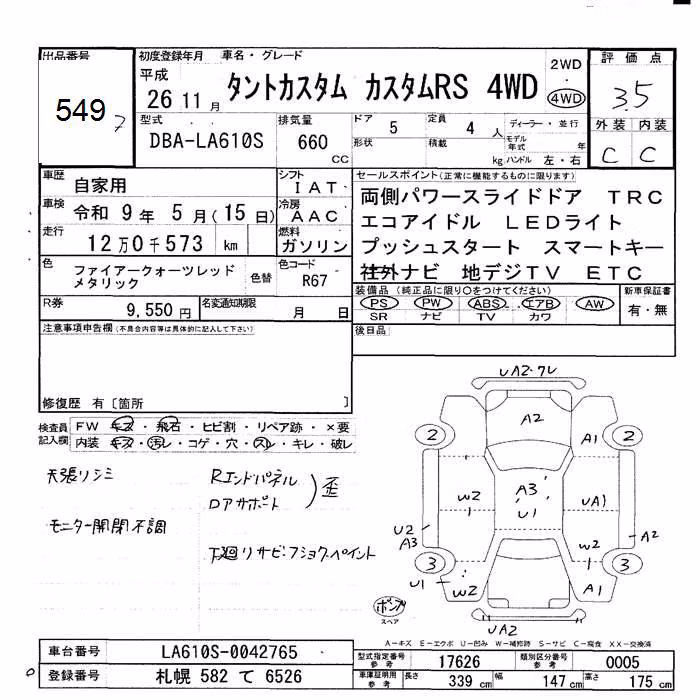 出品番号
549
7
初度登録年月
平成
26 11月
車名・グレード
タントカスタム カスタムRS 4WD
2WD
・
4WD
評価点
3.5
外装 内装
C C
型式
DBA-LA610S
排気量
660
cc
ドア
5
定員
4 人
ディーラー・並行
形状
積載
kg
モデル年式 年
ハンドル 左・右
車歴
自家用
シフト
IAT
車検
令和 9年 5月(15日)
冷房
AAC
走行
12万0千573 km
燃料
ガソリン
色
ファイアークォーツレッド
メタリック
色替
色コード
R67
R券
9,550円
名変通知期限
月 日
セールスポイント(正常に機能するものに限ります)
両側パワースライドドア TRC
エコアイドル LEDライト
プッシュスタート スマートキー
社外ナビ 地デジTV ETC
装備品(純正品に限り○をつけてください)
PS PW ABS エアB AW
SR ナビ TV カワ
新車保証書
有・無
後日品
注意事項申告欄(不具合内容等は具体的に記入して下さい)
修復歴 有〔箇所 〕
検査員
記入欄
FW キズ・飛石・ヒビ割・リペア跡・×要
内装 キズ・汚レ・コゲ・穴・スレ・キレ・破レ
天張リシミ
モニター開閉不調
Rエンドパネル
ロアサポート
)歪
下廻リサビ・フショク・ペイント
UA2・ワレ
A2
2
A1
2
W2
A3
U1
UA1
U2
A3
A2
W2
3
3
U1
W2
A1
ポンプ
スペア
UA2
A-キズ E-エクボ U-凹み W-補修跡 S-サビ C-腐食 XX-交換済
車台番号
LA610S-0042765
登録番号
札幌 582 て 6526
型式指定番号
参考
17626
類別区分番号
参考
0005
車庫証明用
参考
長さ 339 cm
幅 147 cm
高さ 175 cm